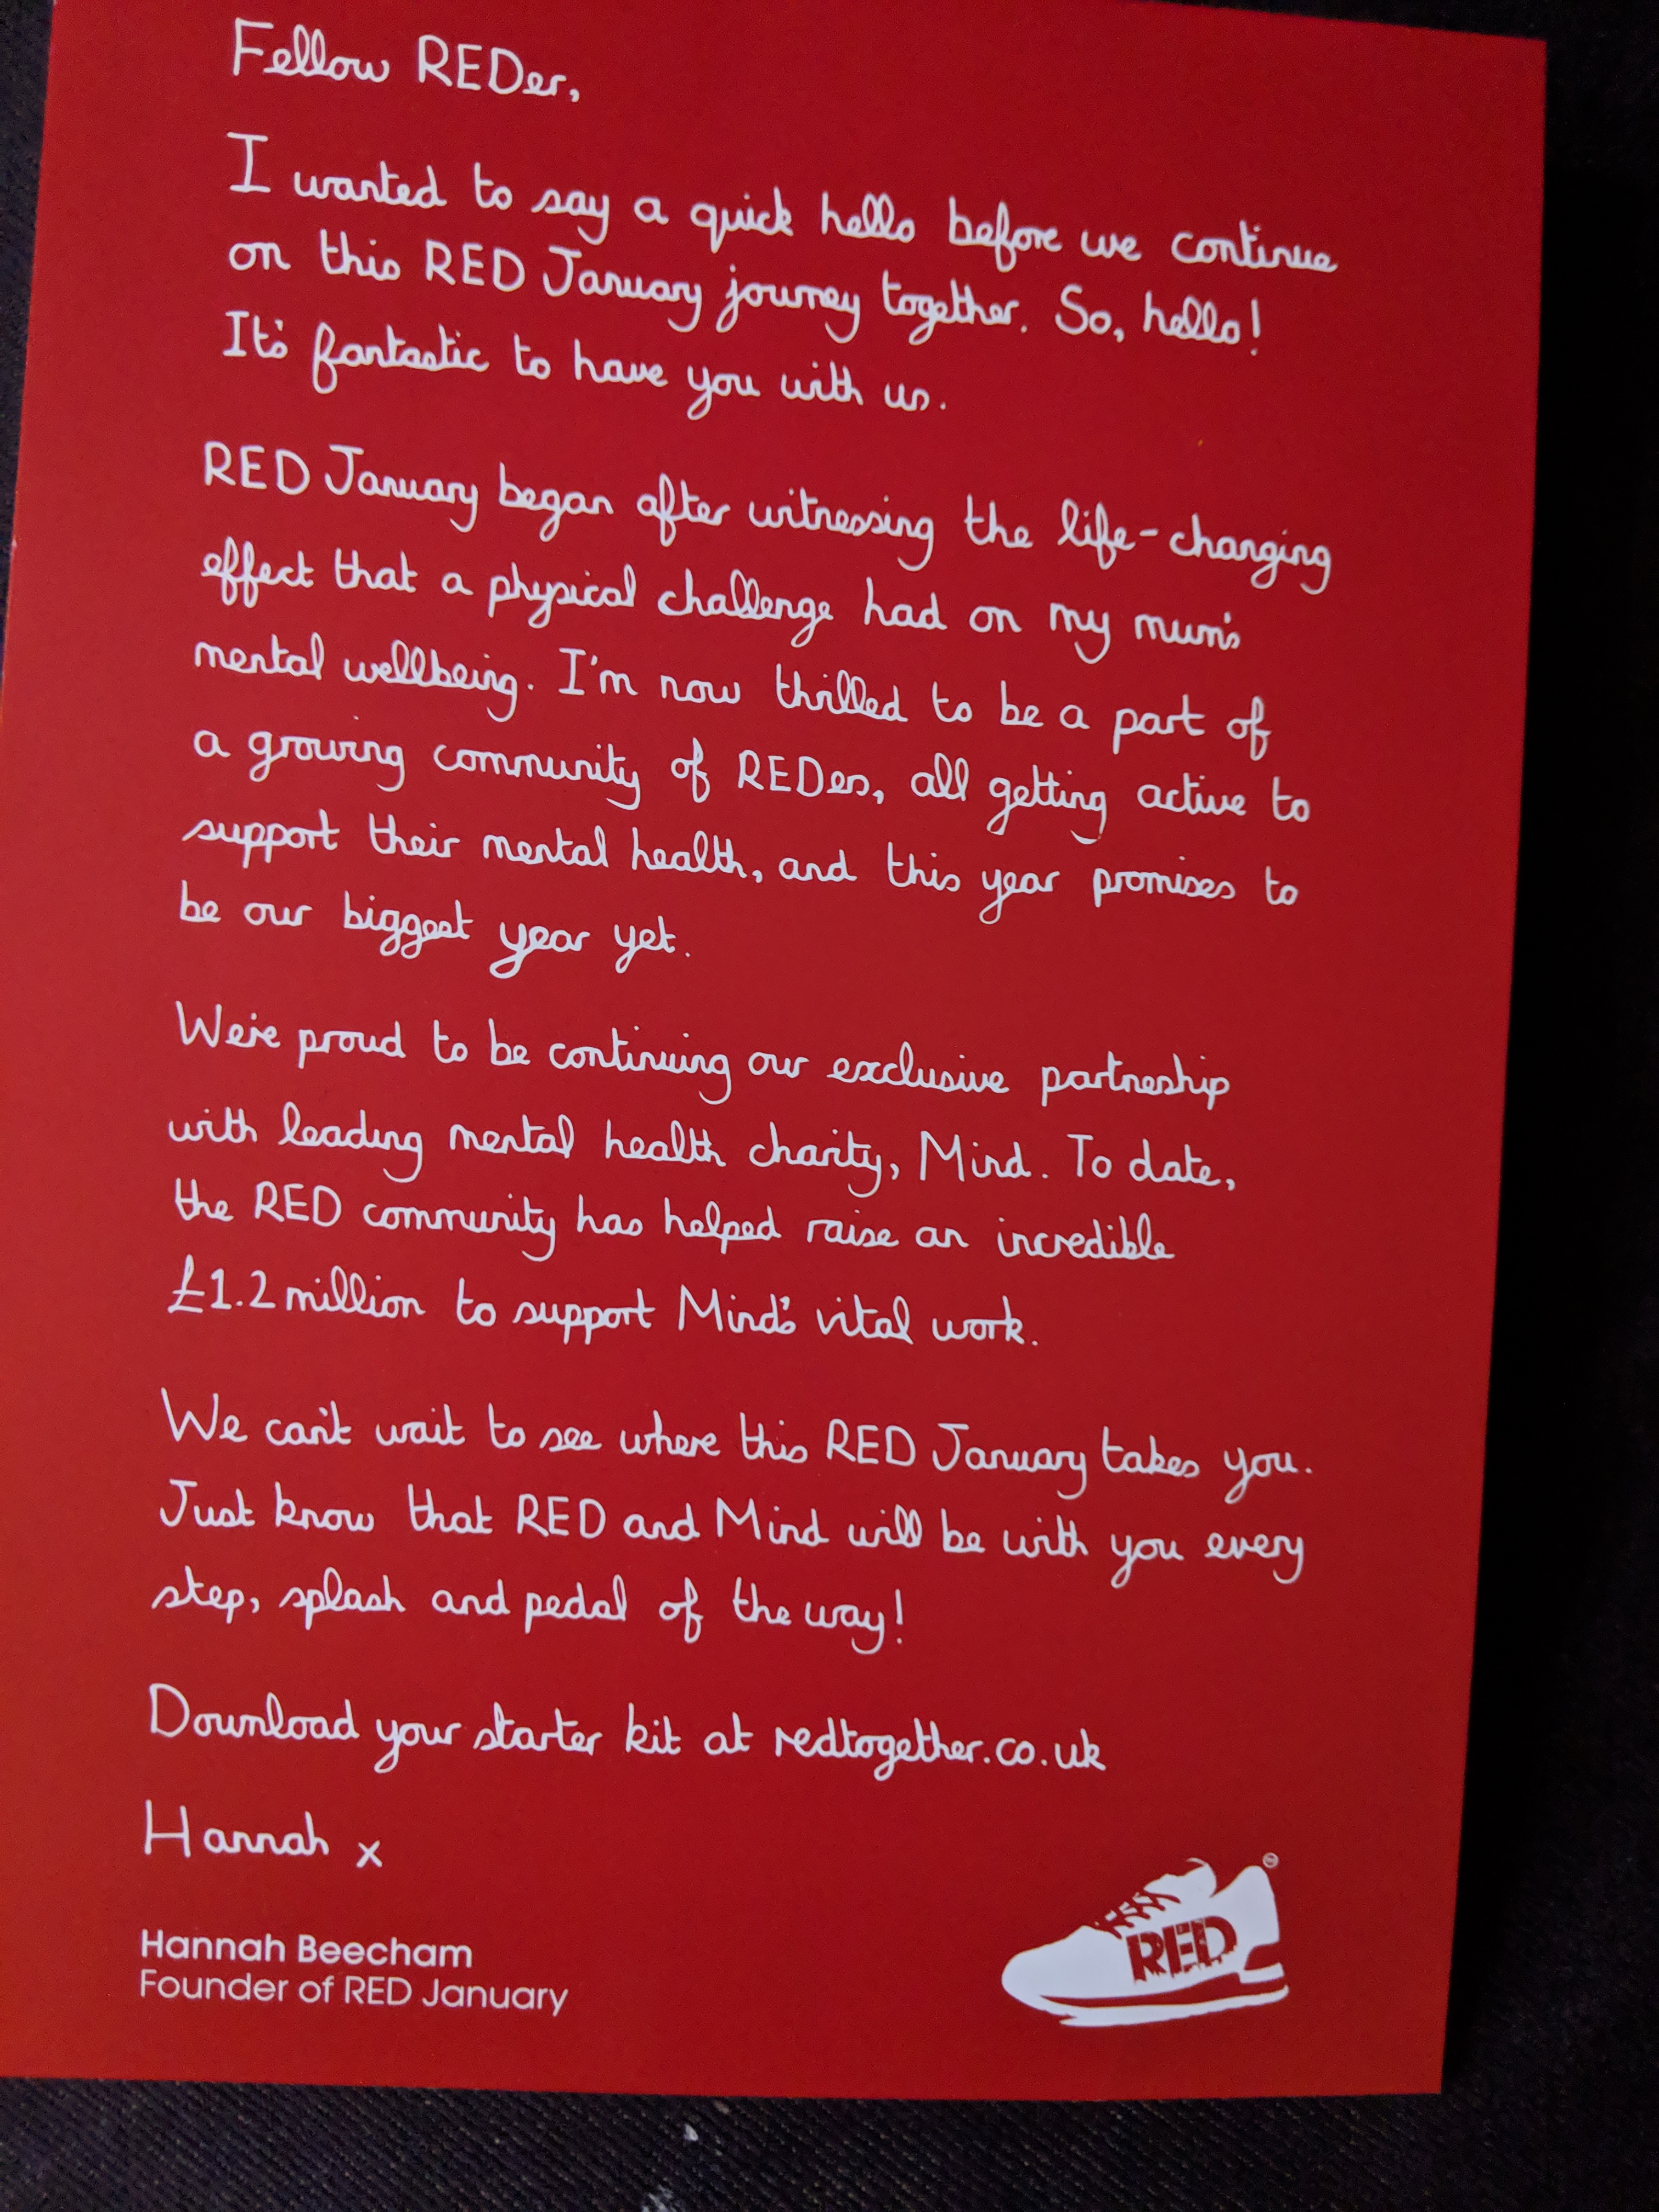 Fellow REDer,
I wanted to say a quick hello before we continue
on this RED January journey together. So, hello!
It's fantastic to have you with us.
RED January began after witnessing the life-changing
effect that a physical challenge had on my mum's
mental wellbeing. I'm now thrilled to be a part of
a growing community of REDers, all getting active to
support their mental health, and this year promises to
be our biggest year yet.
We're proud to be continuing our exclusive partnership
with leading mental health charity, Mind. To date,
the RED community has helped raise an incredible
£1.2 million to support Mind's vital work.
We can't wait to see where this RED January takes you.
Just know that RED and Mind will be with you every
step, splash and pedal of the way!
Download your starter kit at redtogether.co.uk
Hannah x
Hannah Beecham
Founder of RED January
RED